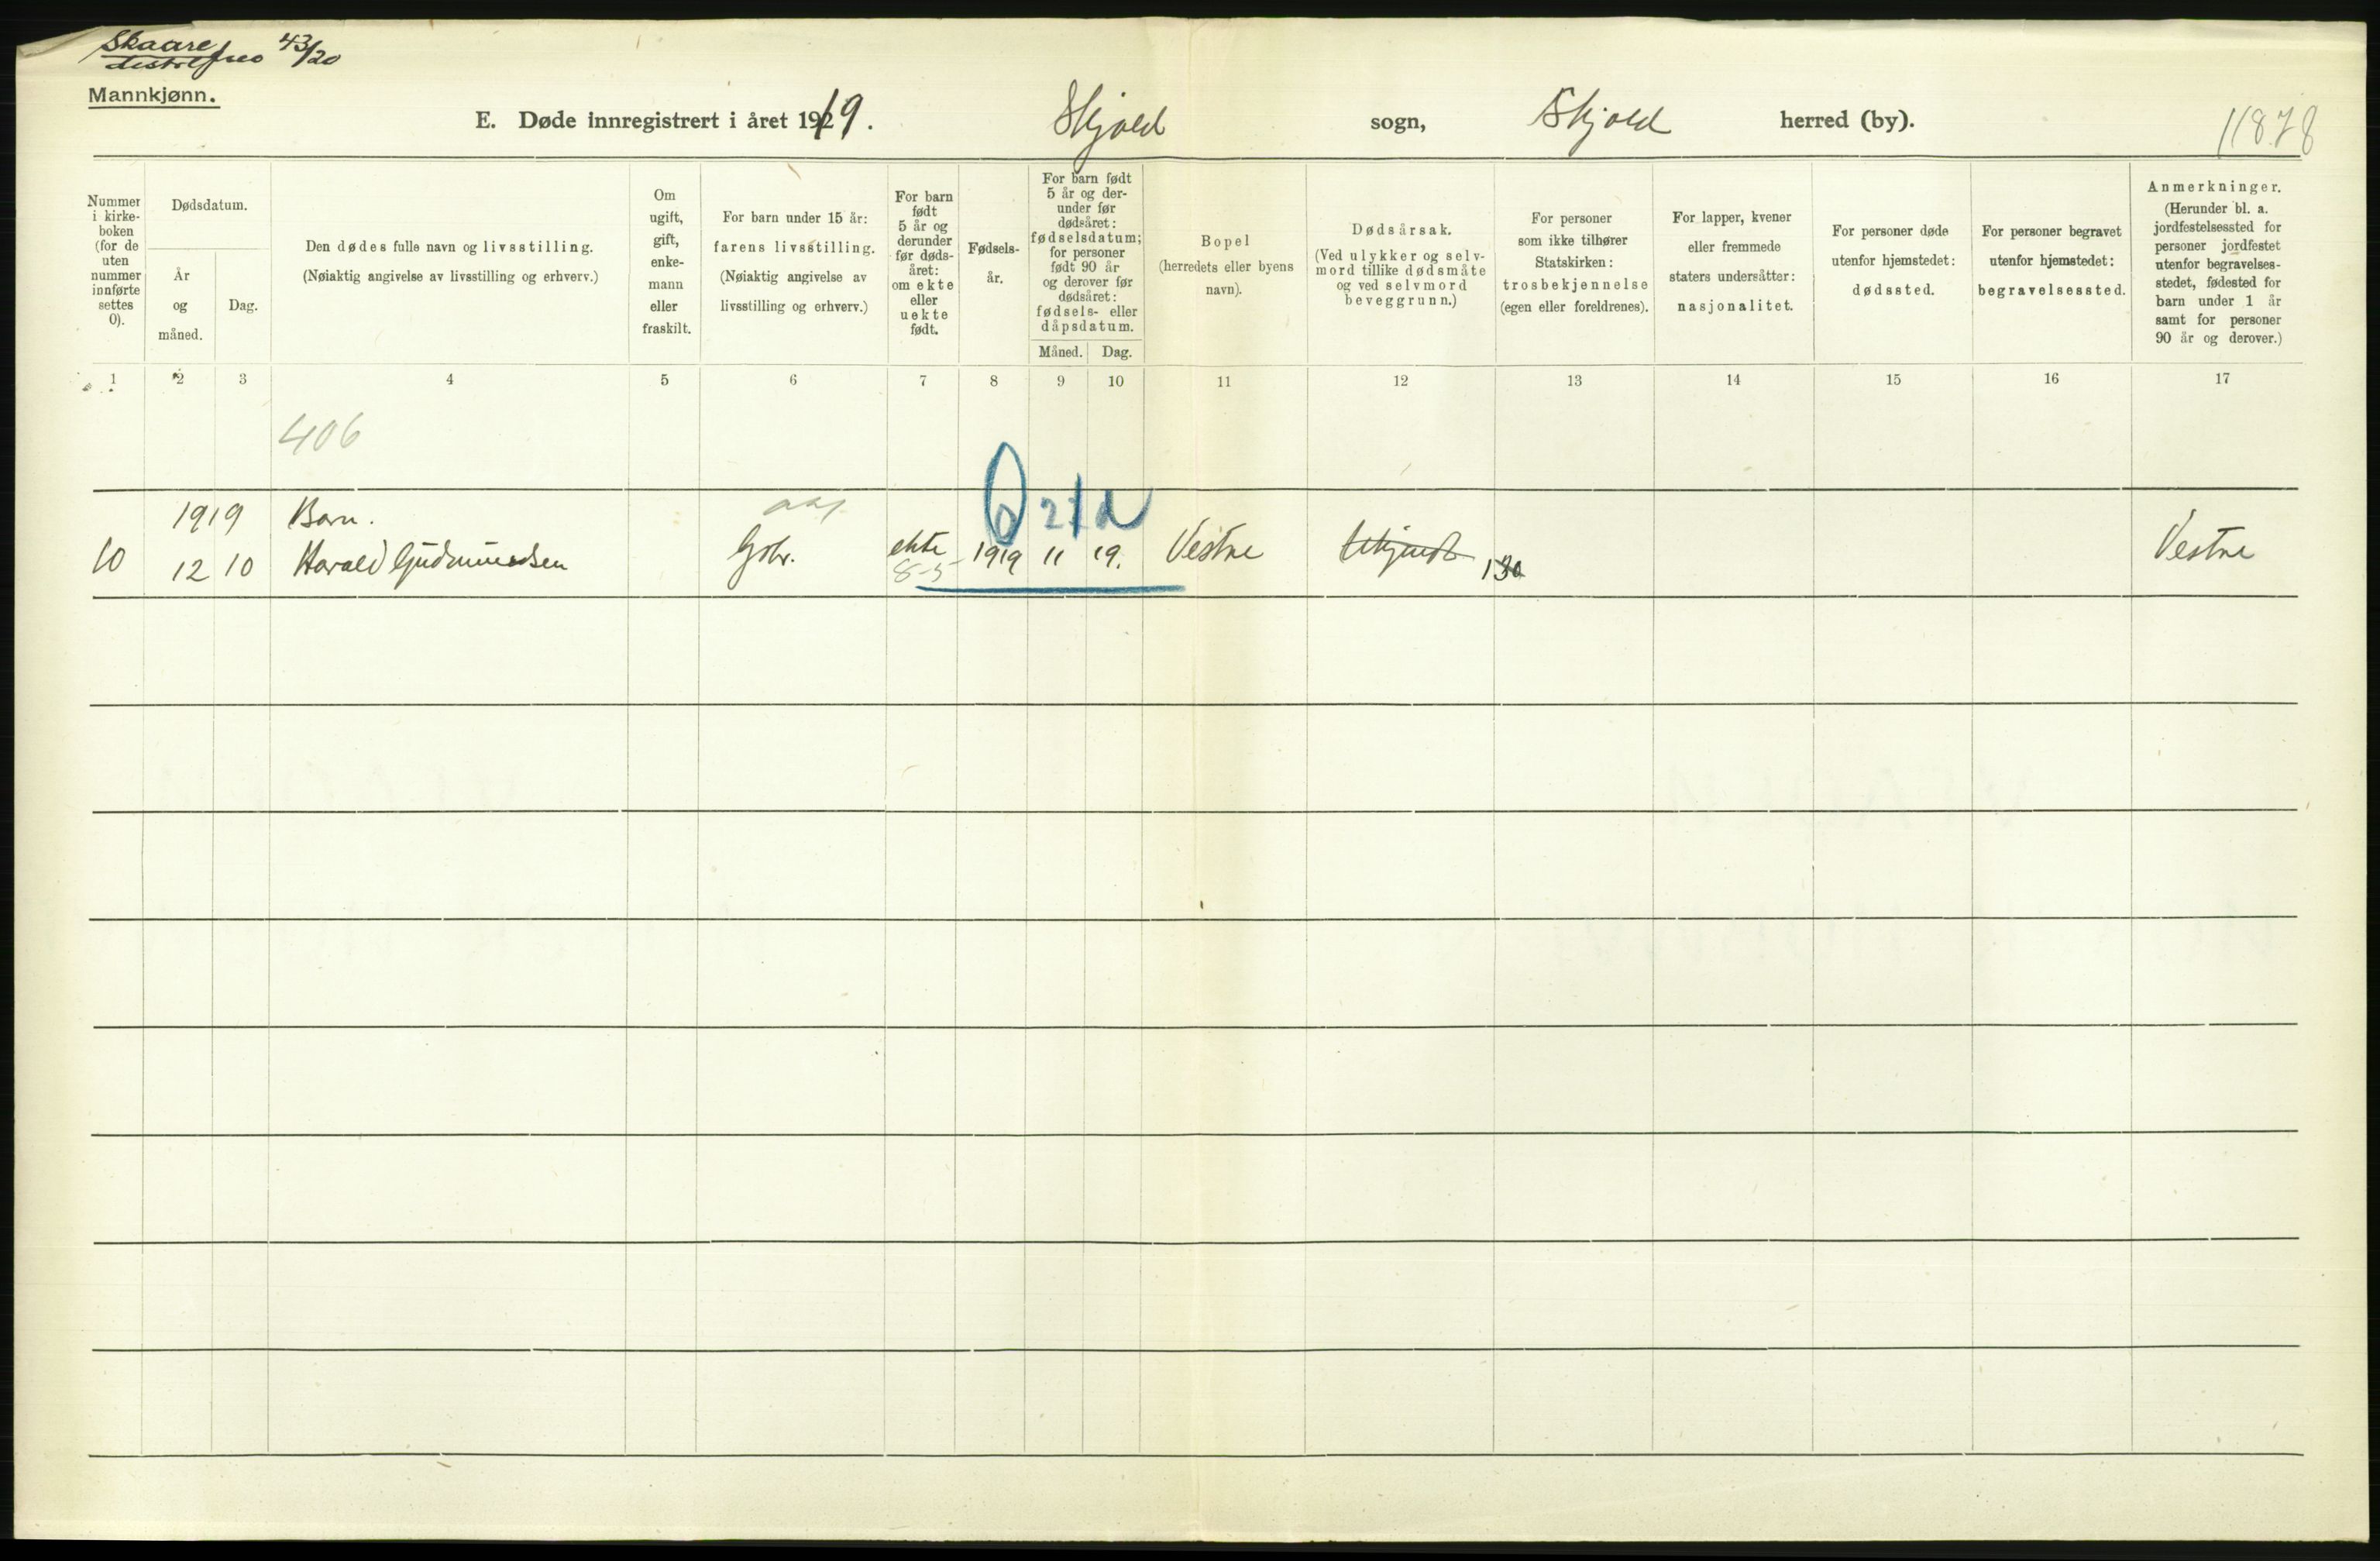 Skaare 43/20
Mannkjønn.
E. Døde innregistrert i året 1919. Skjold sogn, Skjold herred (by).
11878
Nummer i kirke-boken (for de uten nummer innførte settes 0).
Dødsdatum.
År og måned.
Dag.
Den dødes fulle navn og livsstilling.
(Nøiaktig angivelse av livsstilling og erhverv.)
Om ugift, gift, enke-mann eller fraskilt.
For barn under 15 år: farens livsstilling.
(Nøiaktig angivelse av livsstilling og erhverv.)
For barn født 5 år og derunder før døds-året: om ekte eller uekte født.
Fødsels-år.
For barn født 5 år og der-under før dødsåret: fødselsdatum; for personer født 90 år og derover før dødsåret: fødsels- eller dåpsdatum.
Måned. Dag.
Bopel
(herredets eller byens navn).
Dødsårsak.
(Ved ulykker og selv-mord tillike dødsmåte og ved selvmord beveggrunn.)
For personer som ikke tilhører Statskirken: trosbekjennelse
(egen eller foreldrenes).
For lapper, kvener eller fremmede staters undersåtter: nasjonalitet.
For personer døde utenfor hjemstedet: dødssted.
For personer begravet utenfor hjemstedet: begravelsessted.
Anmerkninger.
(Herunder bl. a. jordfestelsessted for personer jordfestet utenfor begravelses-stedet, fødested for barn under 1 år samt for personer 90 år og derover.)
1 2 3 4 5 6 7 8 9 10 11 12 13 14 15 16 17
406
1919 Barn. 21 d
10 12 10 Harald Gudmundsen Gbr. ekte 1919 11 19. Vestre Ukjendt Vestre
8-5